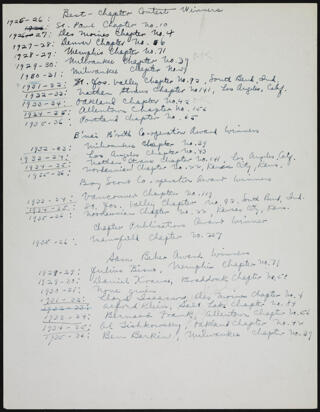 Best-Chapter Contest Winners
1925-26: St. Paul Chapter No. 10
1926-27: Des Moines Chapter No. 4
1927-28: Denver Chapter No. 86
1928-29: Memphis Chapter No. 71
1929-30: Milwaukee Chapter No. 39
1930-31: Milwaukee Chapter No. 39
1931-32: St. Jos. Valley Chapter No. 92, South Bend, Ind.
1932-33: Nathan Straus Chapter No. 141, Los Angeles, Calif.
1933-34: Oakland Chapter No. 42
1934-35: Allentown Chapter No. 156
1935-36: Portland Chapter No. 65
B'nai B'rith Co-operation Award Winners
1932-33: Milwaukee Chapter No. 39
1933-34: Los Angeles Chapter No. 43
1934-35: Nathan Straus Chapter No. 141, Los Angeles, Calif.
1935-36: Nordesman Chapter No. 22, Kansas City, Kans.
Boy Scout Co-operation Award Winners
1933-34: Vancouver Chapter No. 119
1934-35: St. Jos. Valley Chapter No. 92, South Bend, Ind.
1935-36: Nordesman Chapter No. 22, Kansas City, Kans.
Chapter Publications Award Winner
1935-36: Mansfield Chapter No. 227
Sam Beber Award Winners
1928-29: Julius Bisno, Memphis Chapter No. 71
1929-30: Daniel, Braddock Chapter No.
1930-31: None given
1931-32: Des Moines Chapter No. 4
1932-33: Alfred Klein, Salt Lake Chapter No.
1933-34: Bernard Frank, Allentown Chapter No. 156
1934-35: Al Fishkowsky, Oakland Chapter No. 42
1935-36: Ben Barkin, Milwaukee Chapter No. 39